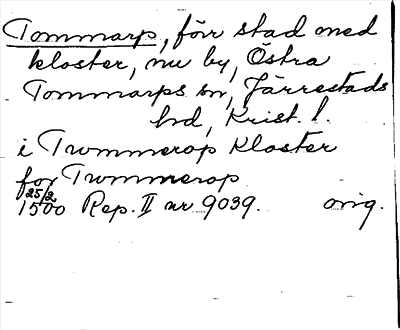 Tommarp, förr stad med
kloster, nu by, Östra
Tommarps sn, Järrestads
hd, Krist. l.
i Twmmerop kloster
for Twmmerop
25/2
1500 Rep. II nr 9039. orig.